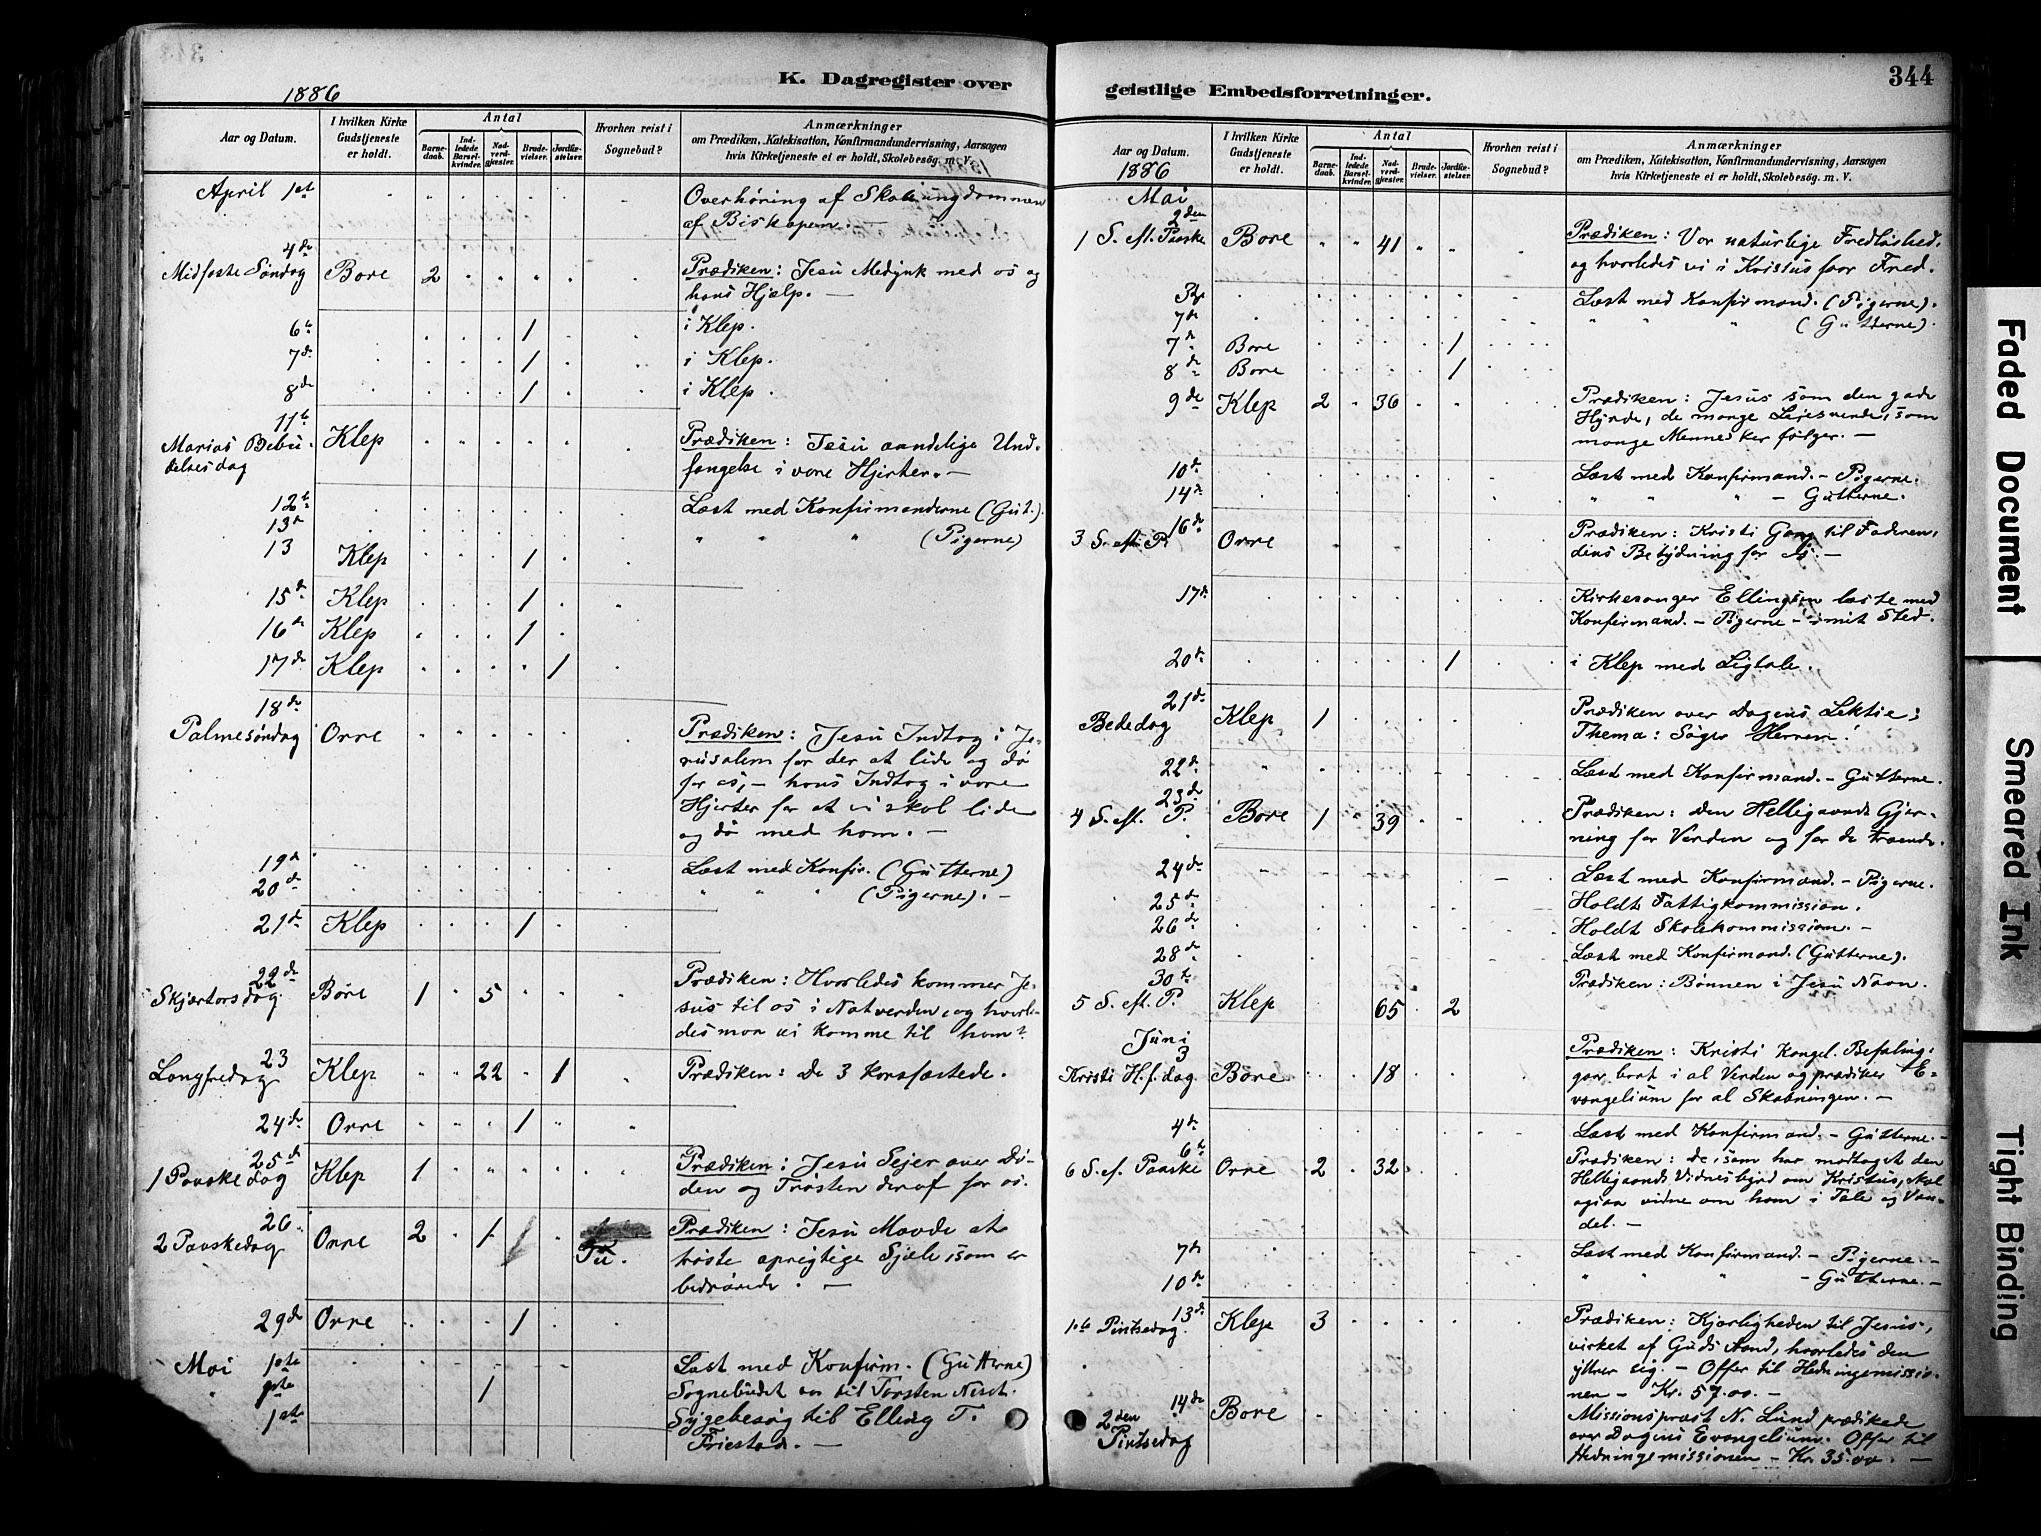 K. Dagregister over
1886
Aar og Datum.
I hvilken Kirke Gudstjeneste er holdt.
Antal
Barne-daab.
Ind-ledede Barsel-kvinder.
Nad-verd-gjæster.
Brude-vielser.
Jordfæ-stelser.
Hvorhen reist i Sognebud?
Anmærkninger
om Prædiken, Katekisation, Konfirmandundervisning, Aarsagen
hvis Kirketjeneste ei er holdt, Skolebesøg. m. V.
April 1st Overhøring af Skoleungdommen
af Biskopen. —
4de
Midfaste Søndag Bore 2 Prædiken: Jesu Medynk med os og
hans Hjælp. —
6te 1 i Klep.
7de 1 i Klep.
8de 1 i Klep.
11te
Mariæ Bebu- Klep Prædiken: Jesu aandelige Und-
delsesdag fangelse i vore Hjerter. —
12te Læst med Konfirmanderne (Gut.)
13de " " " (Pigerne)
13 Klep 1
15de Klep 1
16de Klep 1
17de Klep 1
18de
Palmesøndag Orre Prædiken: Jesu Indtog i Je-
rusalem for der at lide og dø
for os, — hans Indtog i vore
Hjerter for at vi skal lide
og dø med ham. —
19de Læst med Konfir. (Gutterne)
20de " " " (Pigerne). —
21de Klep 1
22de
Skjærtorsdag Bore 1 5 Prædiken: Hvorledes kommer Je-
sus til os i Natverden, og hvorle-
des maa vi komme til ham?
23
Langfredag Klep 22 1 Prædiken: De 3 Korsfæstede.
24de Orre 1
25de
1 Paaskedag Klep 1 Prædiken: Jesu Sejer over Dø-
den og Trøsten deraf for os.
26
2 Paaskedag Orre 2 1 Tu. Prædiken: Jesu Maade at
trøste oprigtige Sjæle, som er
bedrøvede. —
29de Orre 1
Mai 1ste Læst med Konfirm. (Gutterne)
1ste 1 Sognebudet var til Torsten
1ste Sygebesøg til Elling T.
Friestad. —
geistlige Embedsforretninger.
344
Aar og Datum.
1886
I hvilken Kirke Gudstjeneste er holdt.
Antal
Barne-daab.
Ind-ledede Barsel-kvinder.
Nad-verd-gjæster.
Brude-vielser.
Jordfæ-stelser.
Hvorhen reist i Sognebud?
Anmærkninger
om Prædiken, Katekisation, Konfirmandundervisning, Aarsagen
hvis Kirketjeneste ei er holdt, Skolebesøg. m. V.
Mai
2den
1 S. eft. Paaske Bore 41 Prædiken: Vor naturlige Fredløshed,
og hvorledes vi i Kristus faar Fred.
3die Læst med Konfirmand. (Pigerne).
7de " " " (Gutterne).
7de Bore 1
8de Bore 1
9de Klep 2 36 Prædiken: Jesus som den gode
Hyrde, de mange Lejesvende, som
mange Mennesker følger. —
10de Læst med Konfirmand. — Pigerne.
14de " " " — Gutterne.
16de
3 S. eft. P. Orre Prædiken: Kristi Gang til Faderen,
dens Betydning for
17de Kirkesanger Ellingsen læste med
Konfirmand. — Pigerne — i mit Sted.
20de 1 i Klep med Ligtale.
21de
Bededag Klep 1 Prædiken over Dagens Lektie;
Thema: Søger Herren!
22de Læst med Konfirmand. — Gutterne.
23de
4 S. eft. P. Bore 1 39 Prædiken: Den Helligaands Gjer-
ning for Verden og for de troende.
24de Læst med Konfirmand. — Pigerne.
25de Holdt Fattigkommission.
26de Holdt Skolekommission. —
28de Læst med Konfirmand. (Gutterne).
30te Prædiken: Bønnen i Jesu Navn.
5 S. eft. P. Klep 65 2
Juni
3
Kristi H.f.dag. Bore 18 Prædiken: Kristi kongel. Befaling:
gaar bort i al Verden og prædiker E-
vangelium for al Skabningen. —
4de Læst med Konfirmand. — Gutterne. —
6te
6 S. ef. Paaske Orre 2 32 Prædiken: De, som har modtaget den
Helligaands Vidnesbyrd om Kristus, skal
ogsaa vidne om ham i Tale og Van-
del. —
7de Læst med Konfirmand. — Pigerne. —
10de " " " — Gutterne. —
13de
1ste Pintsedag. Klep 3 Prædiken: Kjærligheden til Jesus,
virket af Guds Aand, hvorledes den
yttrer sig. — Offer til Hedningemissio-
nen — Kr. 57.00. —
14de
2den Bore Missionspræst N. Lund prædikede
Pintsedag over Dagens Evangelium. Offer til
Hedningemissionen — Kr. 35.00. —
Faded Document
Smeared Ink
Tight Binding